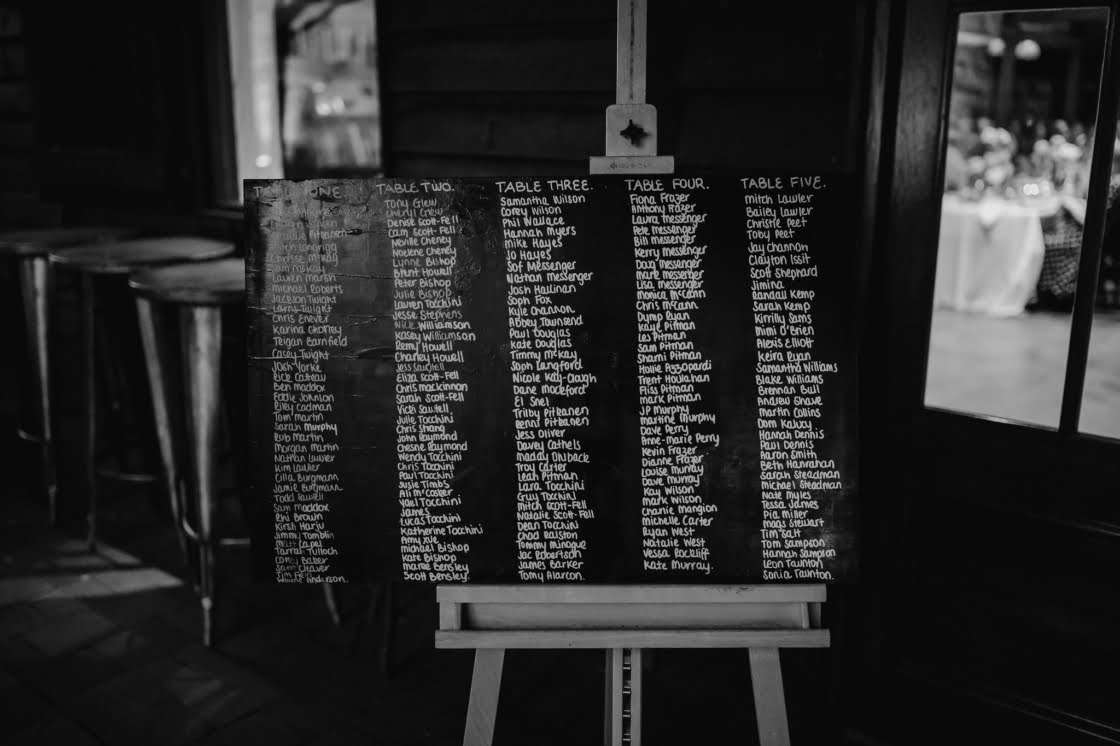 TABLE ONE
Mitch Longrigg
Chrisse McKay
Lauren Marsh
Michael Roberts
Jackson Twight
Chris Enever
Karina Chorley
Teigan Barnfield
Casey Twight
Josh Yorke
Ben maddox
Eddie Johnson
Riley Codman
Tom martin
Sarah Murphy
Rob martin
Morgan martin
Nathan Lawler
Kim Lawler
Cilla Burgmann
Jamie Burgmann
Todd Lawell
Sam maddox
Eki Brown
Kirsh Harju
Jimmy Tomblin
Matt Capel
Tarrah Tulloch
Corey Baber
Sam Cleaver
Wayne Anderson.
TABLE TWO.
Tony Glew
Cheryl Glew
Denise Scott-Fell
Cam Scott-Fell
Neville Cheney
Noelene Cheney
Lynne Bishop
Brent Howell
Peter Bishop
Julie Bishop
Lauren Tocchini
Jesse Stephens
Nick Williamson
Kasey Williamson
Remy Howell
Charley Howell
Jess Sawtell
Eliza Scott-Fell
Chris mackinnon
Sarah Scott-Fell
Vicki Sawtell
Julie Tocchini
Chris Shang
John Raymond
Chesne Raymond
Wendy Tocchini
Chris Tocchini
Paul Tocchini
Susie Timbs
Ali McCosker
Yael Tocchini
James
Lucas Tocchini
Katherine Tocchini
Amy Xue
michael Bishop
Kate Bishop
Marne Bensley
Scott Bensley.
TABLE THREE.
Samantha Wilson
Corey Wilson
Phil Wallace
Hannah Myers
Mike Hayes
Jo Hayes
Sof Messenger
Nathan Messenger
Josh Hallinan
Soph Fox
Kyle Channon
Abbey Townsend
Paul Douglas
Kate Douglas
Timmy McKay
Soph Langford
Nicole Kay-Clough
Dane Mockeford
El Snel
Trilby Pitkanen
Renni Pitkanen
Jess Oliver
Davey Cathels
Maddy Dhlback
Troy Carter
Leah Pitman
Lara Tocchini
Guy Tocchini
Mitch Scott-Fell
Natalie Scott-Fell
Dean Tocchini
Chad Ralston
Tommy Minogue
Jac Robertson
James Barker
Tomy Alarcon.
TABLE FOUR.
Fiona Frazer
Anthony Frazer
Laura Messenger
Pete Messenger
Bill Messenger
Kerry Messenger
Dan Messenger
Mare Messenger
Lisa Messenger
Monica McCann
Chris McCann
Dump Ryan
Kaye Pitman
Les Pitman
Sam Pitman
Sharni Pitman
Hollie Azzopardi
Trent Houlahan
Fliss Pitman
Mark Pitman
JP Murphy
Martine Murphy
Dave Perry
Anne-Marie Perry
Kevin Frazer
Dianne Frazer
Louise Murray
Dave Murray
Kay Wilson
Mark Wilson
Charlie Mangion
Michelle Carter
Ryan West
Natalie West
Vessa Rockliff
Kate Murray.
TABLE FIVE.
Mitch Lawler
Bailey Lawler
Christie Peet
Toby Peet
Jay Channon
Clayton Issit
Scott Shephard
Jimina
Randall Kemp
Sarah Kemp
Kirrilly Sams
Mimi O'Brien
Alexis Elliott
Keira Ryan
Samantha Williams
Blake Williams
Brennan Bull
Andrew Shave
Martin Collins
Dom Kaluzy
Hannah Dennis
Paul Dennis
Aaron Smith
Beth Hanrahan
Sarah Steadman
Michael Steadman
Nate Myles
Tessa James
Pia Miller
Mags Stewart
Tim Salt
Tom Sampson
Hannah Sampson
Leon Taunton
Sonia Taunton.